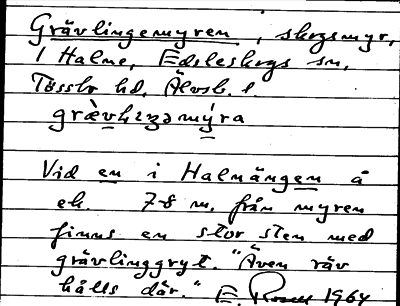 Grävlingemyren, skogsmyr,
i Halne, Edsleskogs sn,
Tössbo hd, Älvsb. l.
Vid en i Halnängen å
ek. 7-8 m. från myren
finns en stor sten med
grävlinggryt. "Även räv
hålls där." E. 1964